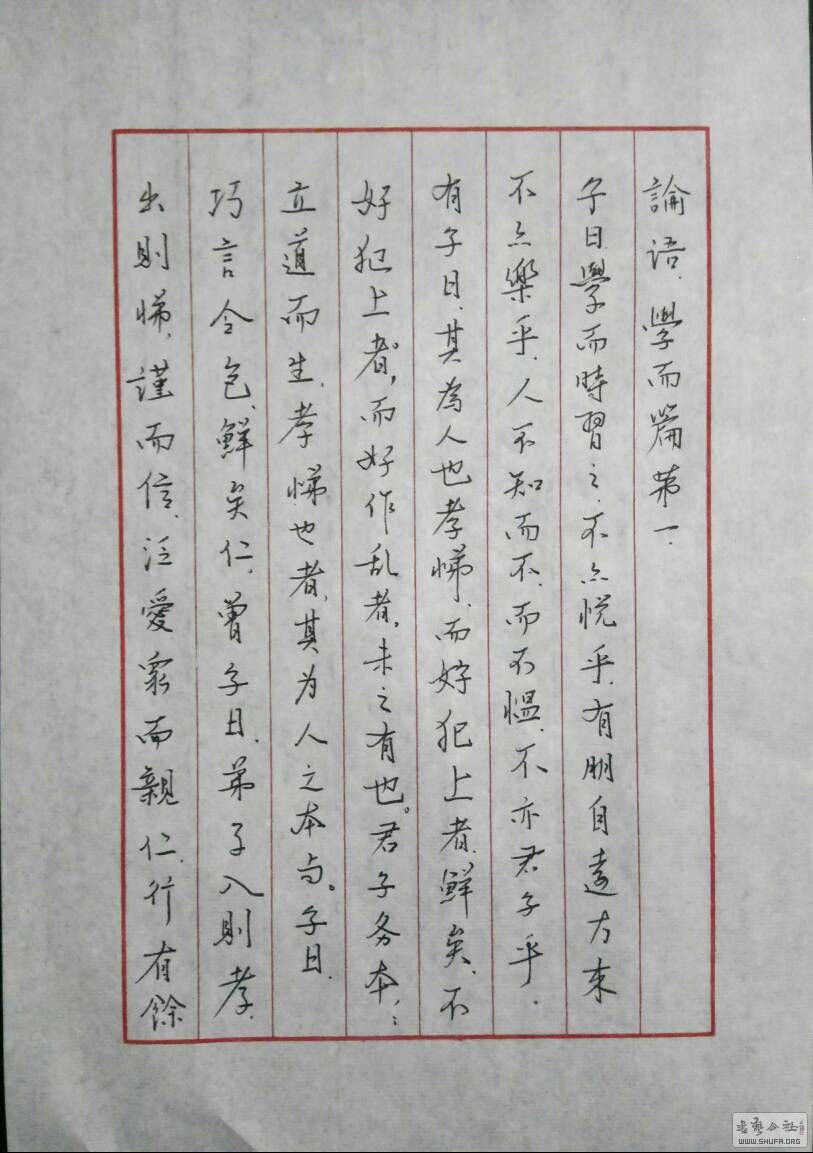 論语.學而篇第一.
子曰.學而時習之.不亦悦乎.有朋自遠方来
不亦樂乎.人不知而不.而不愠.不亦君子乎.
有子曰.其為人也孝悌.而好犯上者.鲜矣.不
好犯上者,而好作乱者,未之有也。君子务本,:
立道而生.孝悌也者.其为人之本与。子曰.
巧言令色.鲜矣仁.曾子曰.弟子入則孝.
出則悌.謹而信.泛愛衆而親仁.行有餘
书艺公社
WWW.SHUFA.ORG